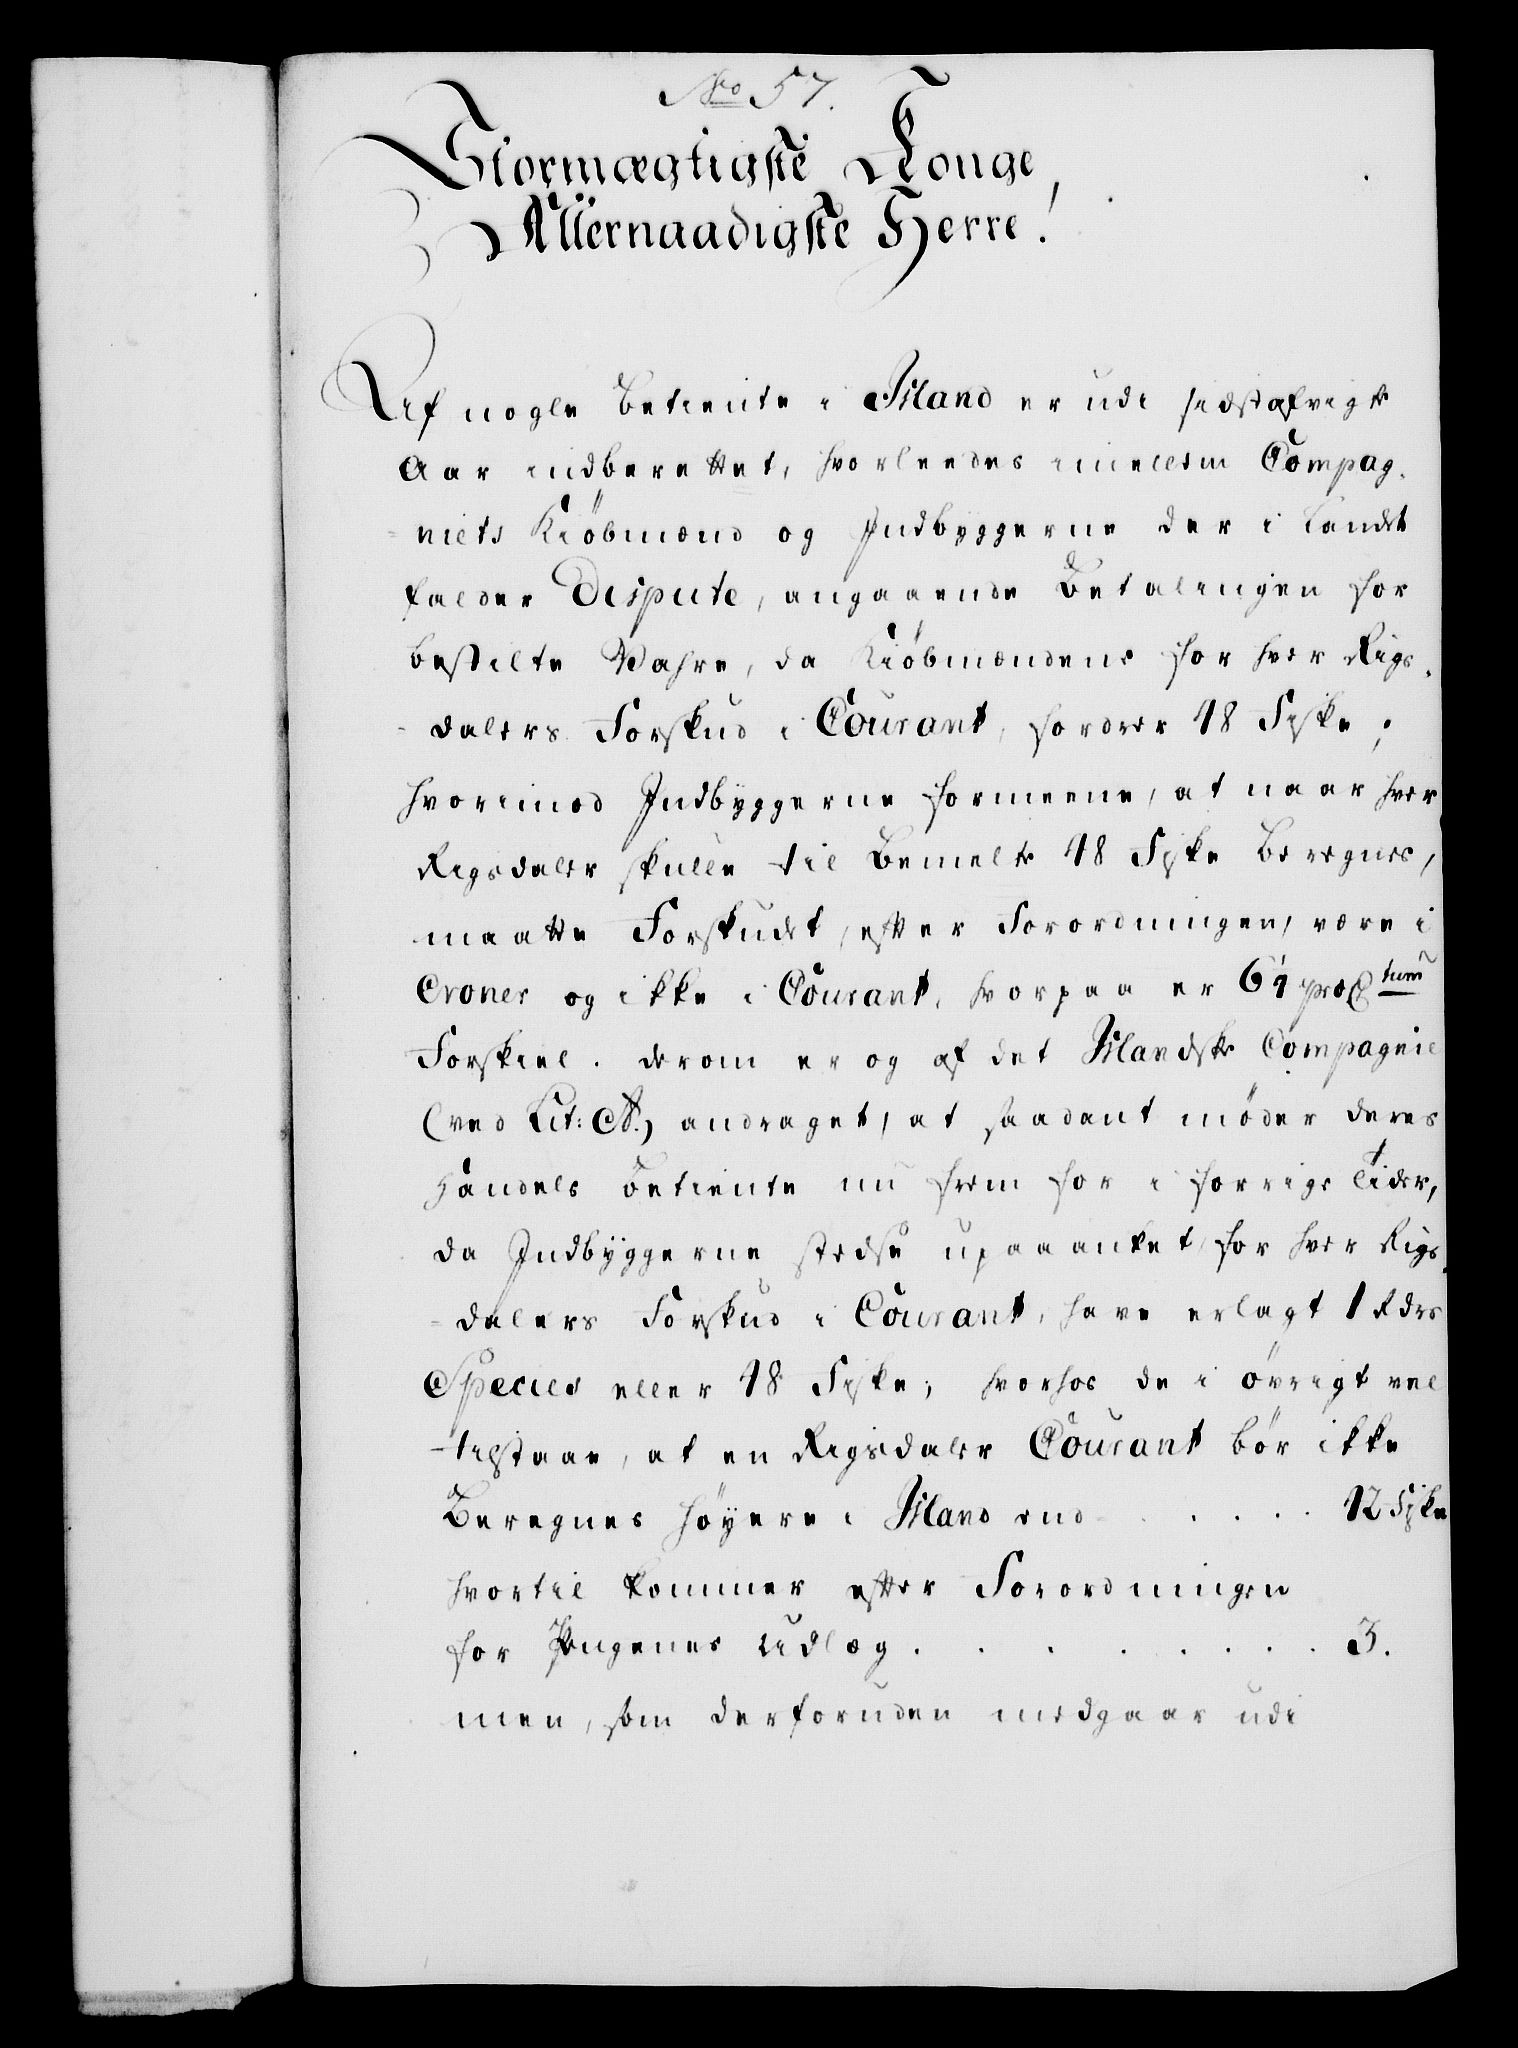 No 57.
Stormægtigste Konge,
Allernaadigste Herre!
Af nogle Betiente i Island er udi sidstafvigte
Aar indberettet, hvorleedes imellem Compag-
-niets Kiöbmænd og Indbyggerne der i Landet
falder Dispute, angaaende Betalingen for
bestilte Vahre, da Kiöbmændene for hver Rigs-
-dalers Forskud i Courant, fordrer 18 Fiske;
hvorimod Indbyggerne formeene, at naar hver
Rigsdaler skulle til Bemelte 18 Fiske Beregnes,
maatte Forskudet, efter Forordningen, være i
Croner og ikke i Courant, hvorpaa er 6¼ pro Ctum
Forskiel. derom er og af det Islandske Compagnie
(ved Lit: A.) andraget, at saadant möder deres
Handels Betiente nu frem for i forrige Tider,
da Indbyggerne stedse upaaanket, for hver Rigs-
-dalers Forskud i Courant, have erlagt 1 Rdrs
Species eller 18 Fiske; hvorhos de i övrigt vel
tilstaae, at en Rigsdaler Courant bör ikke
Beregnes höyere i Island end . . . . 12 Fiske
hvortil kommer efter Forordningen
for Pengenes Udlæg . . . . . . . 3.
men, som derforuden medgaar udi